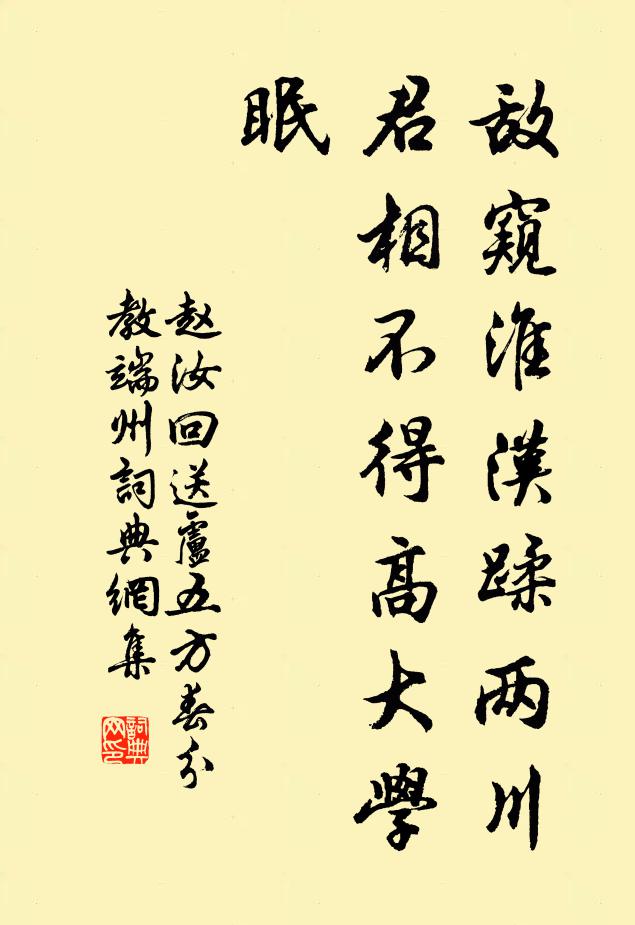 敌窺淮漢蹂两川
君相不得高大學
眠
赵汝回送盧五方春分
教端州詞典網集
詞典
网印